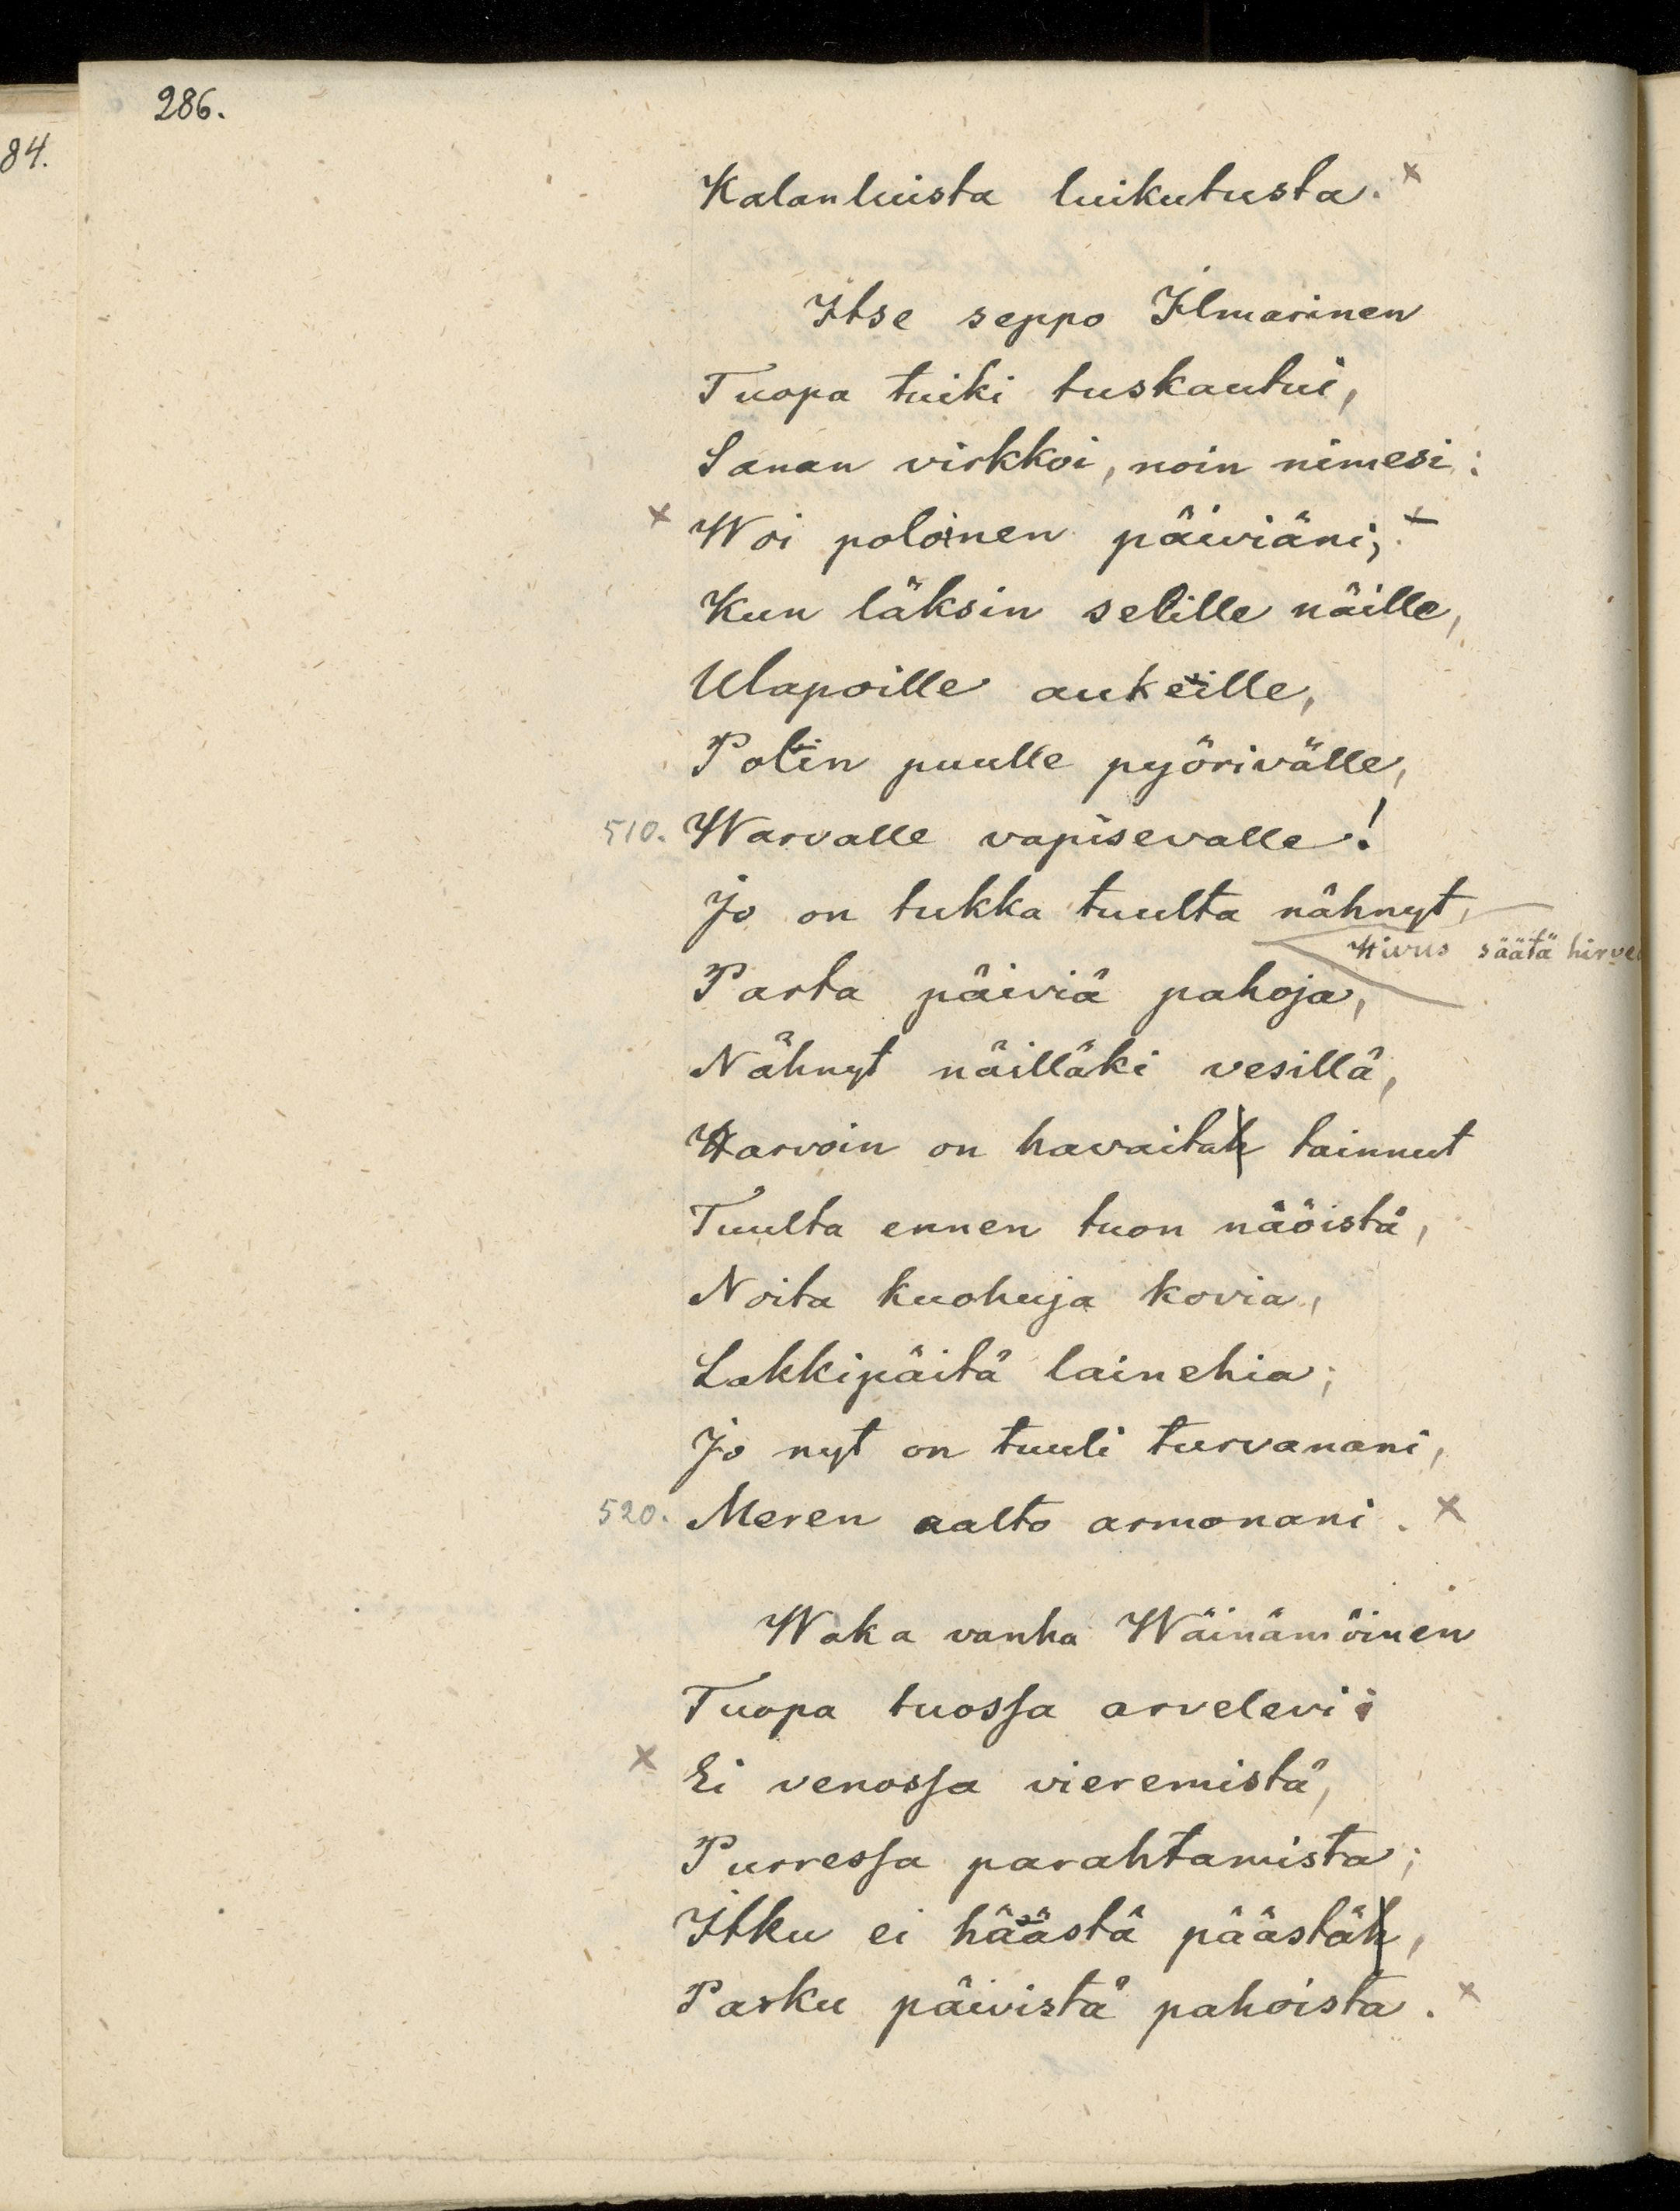 286.
84.
Kalanluista luikutusta. x
Itse seppo Ilmarinen
Tuopa tuiki tuskautui,
Sanan virkkoi, noin nimesi:
x Woi poloinen päiviäni, x
Kun läksin selille näille,
Ulapoille aukeille,
Polin puulle pyörivälle,
510. Warvalle vapisevalle!
Jo on tukka tuulta nähnyt,
Hivus säätä
Parta päiviä pahoja,
Nähnyt näilläki vesillä,
Harvoin on havaitah tainnut
Tuulta ennen tuon näöistä,
Noita kuohuja kovia,
Lakkipäitä lainehia;
Jo nyt on tuuli turvanani,
520. Meren aalto armonani. x
Waka vanha Wäinämöinen
Tuopa tuossa arvelevi:
x Ei venossa vieremistä,
Purressa parahtamista;
Itku ei häästä päästäh,
Parku päivistä pahoista. x